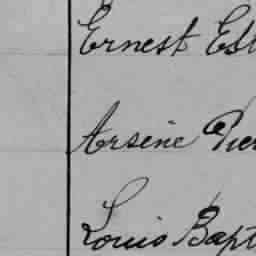 Ernest Est
Arsène Pier
Louis Bapt